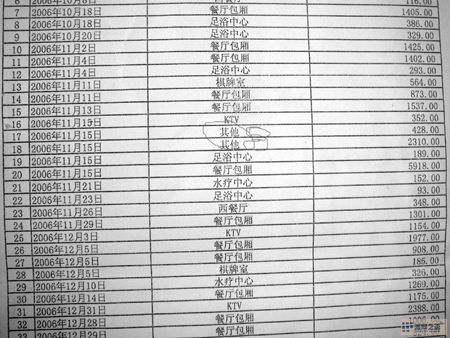 6 2006年10月8日 西餐厅 116.00
7 2006年10月18日 餐厅包厢 1405.00
8 2006年10月18日 足浴中心 386.00
9 2006年10月20日 足浴中心 329.00
10 2006年11月2日 餐厅包厢 1425.00
11 2006年11月4日 餐厅包厢 1402.00
12 2006年11月4日 足浴中心 293.00
13 2006年11月11日 棋牌室 564.00
14 2006年11月11日 餐厅包厢 873.00
15 2006年11月13日 餐厅包厢 1537.00
16 2006年11月15日 KTV 352.00
17 2006年11月15日 其他 428.00
18 2006年11月15日 其他 2310.00
19 2006年11月15日 足浴中心 189.00
20 2006年11月15日 餐厅包厢 5918.00
21 2006年11月21日 水疗中心 162.00
22 2006年11月23日 足浴中心 93.00
23 2006年11月26日 西餐厅 348.00
24 2006年11月29日 餐厅包厢 1301.00
25 2006年12月3日 KTV 1154.00
26 2006年12月5日 餐厅包厢 1977.00
27 2006年12月5日 餐厅包厢 908.00
28 2006年12月5日 棋牌室 185.00
29 2006年12月10日 水疗中心 326.00
30 2006年12月14日 餐厅包厢 1269.00
31 2006年12月31日 KTV 1175.00
32 2006年12月28日 餐厅包厢 2388.00
33 2006年12月29日 餐厅包厢